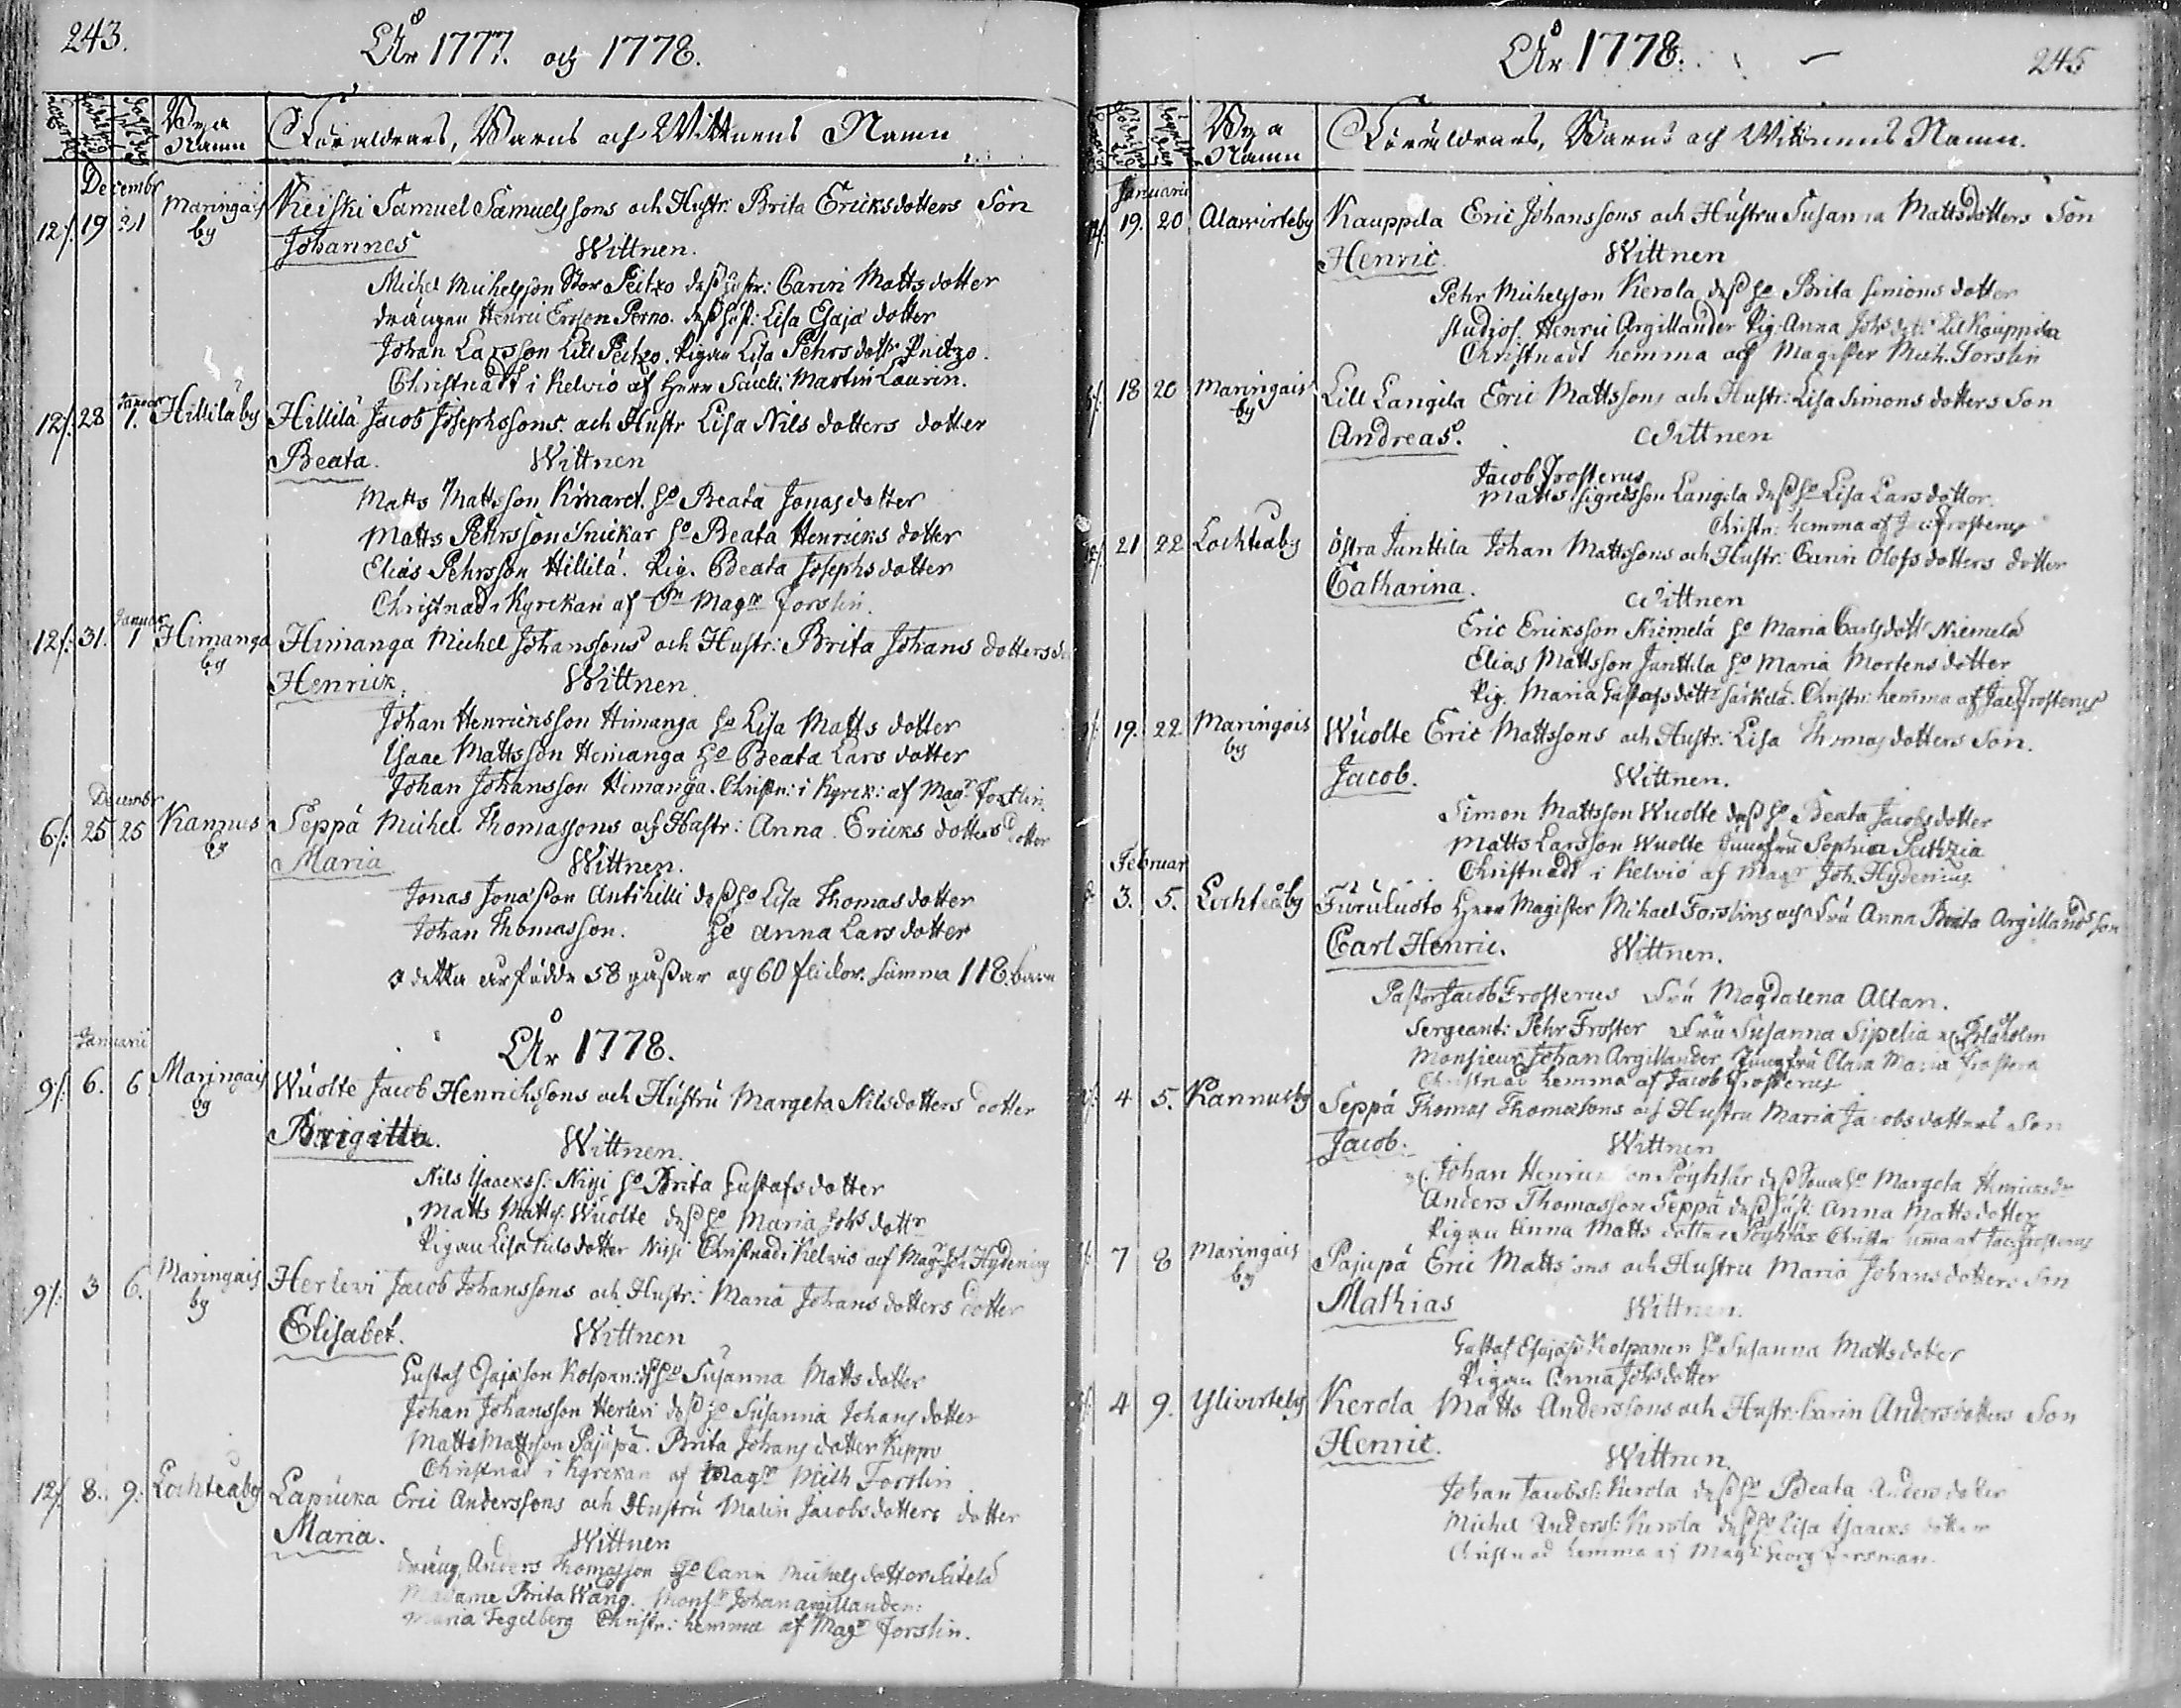 243.
År 1777. och 1778.
Bya Namn
Föräldrars, Barns och Wittnens Namn
Decembr
12/. 19 21 Maringais by Keiski Samuel Samuelssons och Hustr: Brita Ericksdotters Son
Johannes Wittnen.
Michel Michelsson Stor Peitzo dess hustr: Carin Matts dotter
drängen Henric Ersson Perno. dess hust: Lisa Esaja dotter
Johan Larsson Lill Peitzo. Pigan Lisa Pehrs dottr Peitzo.
Christnadt i Kelvio af Herr Martin Laurin.
Januar
12/. 28 1. Hillilä by Hillilä Jacob Josephssons och Hustr Lisa Nils dotters dotter
Beata. Wittnen
Matts Mattsson Kinaret. ho Beata Jonas dotter
Matts Pehrsson Snickar ho Beata Henricks dotter
Elias Pehrsson Hillilä. Pig. Beata Josephs dotter
Christnad i Kyrckan af Magr Forslin.
Januar
12/. 31. 1 Himanga by Himanga Michel Johanssons och Hustr: Brita Johans dotters
Henrick. Wittnen
Johan Henricksson Himanga ho Lisa Matts dotter
Isaac Mattsson Hemanga ho Beata Lars dotter
Johan Johansson Himanga. Christn: i Kyrck: af Magr Forslin.
Decembr
6/. 25 25 Kannus by Seppä Michel Thomassons och Hustr: Anna Ericks dotters dotter
Maria Wittnen.
Jonas Jonasson Antihilli dess ho Lisa Thomas dotter
Johan Thomasson. ho Anna Lars dotter
detta år födde 58 gåssar och 60 flickor. Summa 118. barn
År 1778.
Januarii
9/. 6. 6 Maringais by Wuolte Jacob Henrichssons och Hustru Margeta Nilsdotters dotter
Brigitta. Wittnen.
Nils Isacks: Niyi ho Brita Gustafs dotter
Matts Matts: Wuolte dess ho Maria Johs dottr
Pigan Lisa Nilsdotter Christnad i Kelvio af Magr Joh Hydenius
9/. 3 6. Maringais by Herlevi Jacob Johanssons och Hustr: Maria Johans dotters dotter
Elisabet. Wittnen
Gustaf Esajason Kolpan: dess ho Susanna Matts dotter
Johan Johansson Herlevi dess ho Susanna Johans dotter
Matts Mattsson Pajupä. Brita Johans dotter Kippo
Christnad i Kyrckan af Magr Mich Forslin
12/. 8. 9. Lochteåby Lapücka Eric Anderssons och Hustru Malin Jacobsdotters dotter
Maria. Wittnen
dräng Anders Thomasson ho Carin Michels dotter
Madame Brita Wang. Monsr Johan Argillander:
Maria Tegelberg Christn: hemma af Magr Forslin.
År 1778.
245
Bya Namn
Föräldrars, Barns och Wittnens Namn.
Januarii
19. 20 Alawirteby Kauppila Eric Johanssons och Hustru Susanna Mattsdotters Son
Henric. Wittnen
Pehr Michelsson Kerola dess ho Brita Simons dotter
Studios. Henric Argillander Pig. Anna Johs dottr Lil Kauppila
Christnadt hemma af Magister Mich. Forslin
18 20 Maringais by Lill Langila Eric Mattssons och Hustr: Lisa Simons dotters Son
Andreas. Wittnen
Jacob Frosterus
Matts Sigredsson Langila dess ho Lisa Lars dotter.
Christn: hemma af Frosterus
21 22 Lochteåby Östra Junttila Johan Mattssons och Hustr: Carin Olofs dotters dotter
Catharina. Wittnen
Eric Ericksson Niemelä ho Maria Carlsdottr Niemelä
Elias Mattsson Junttila ho Maria Mortens dotter
Pig. Maria Gustafs dottr Särkelä. Christn: hemma af Jac: Frosterus
19. 22 Maringais by Wuolte Eric Mattssons och Hustr: Lisa Thomas dotters Son.
Jacob. Wittnen.
Simon Mattsson Wuolte dess ho Beata Jacobs dotter
Matts Larsson Wuolte Jungfru Sophia
Christnadt i Kelvio af Magr Joh. Hydenius
Februar
3. 5. Lochteåby Furuluoto Herr Magister Michael Forslins och Fru Anna Brita Argillands Son
Carl Henric. Wittnen.
Pastor Jacob Frosterus Fru Magdalena Altan.
Sergeant: Pehr Froster Fru Susanna Sipelia
Monsieur Johan Argillander Jungfru Clara Maria Frostera
Christnad hemma af Jacob Frosterus
4 5. Kannusby Seppä Thomas Thomasons och Hustru Maria Jacobs dotters Son
Jacob. Wittnen
Johan Henricsson Pöyhtär dess ho Margeta Henricsdr
Anders Thomasson Seppä dess hust: Anna Matts dotter
Pigan Anna Matts dotter Pöyhtär Christn hemma af Jac: Frosterus
7 8 Maringais by Pajupä Eric Mattssons och Hustru Maria Johans dotters Son
Mathias Wittnen.
Gustaf Esajas: Kolpanen ho Susanna Matts dotter
Pigan Anna Johs dotter
4 9. Yliwirteby Kerola Matts Anderssons och Hustr: Carin Anders dotters Son
Henric. Wittnen.
Johan Jacobss: Kerola dess ho Beata Anders dotter
Michel Anderss: Kerola dess ho Lisa Isaacks dotter
Christnad hemma af Magr Georg Forsman.